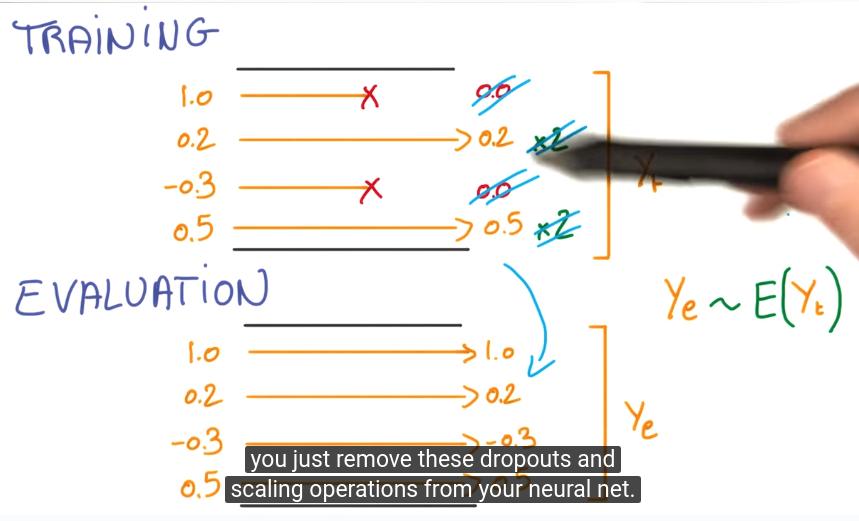 TRAINING
1.0 x 0.0
0.2 0.2 x2
-0.3 x 0.0
0.5 0.5 x2
Yt
EVALUATION
Ye ~ E(Yt)
1.0 1.0
0.2 0.2
-0.3 -0.3
Ye
you just remove these dropouts and
0.5 scaling operations from your neural net.